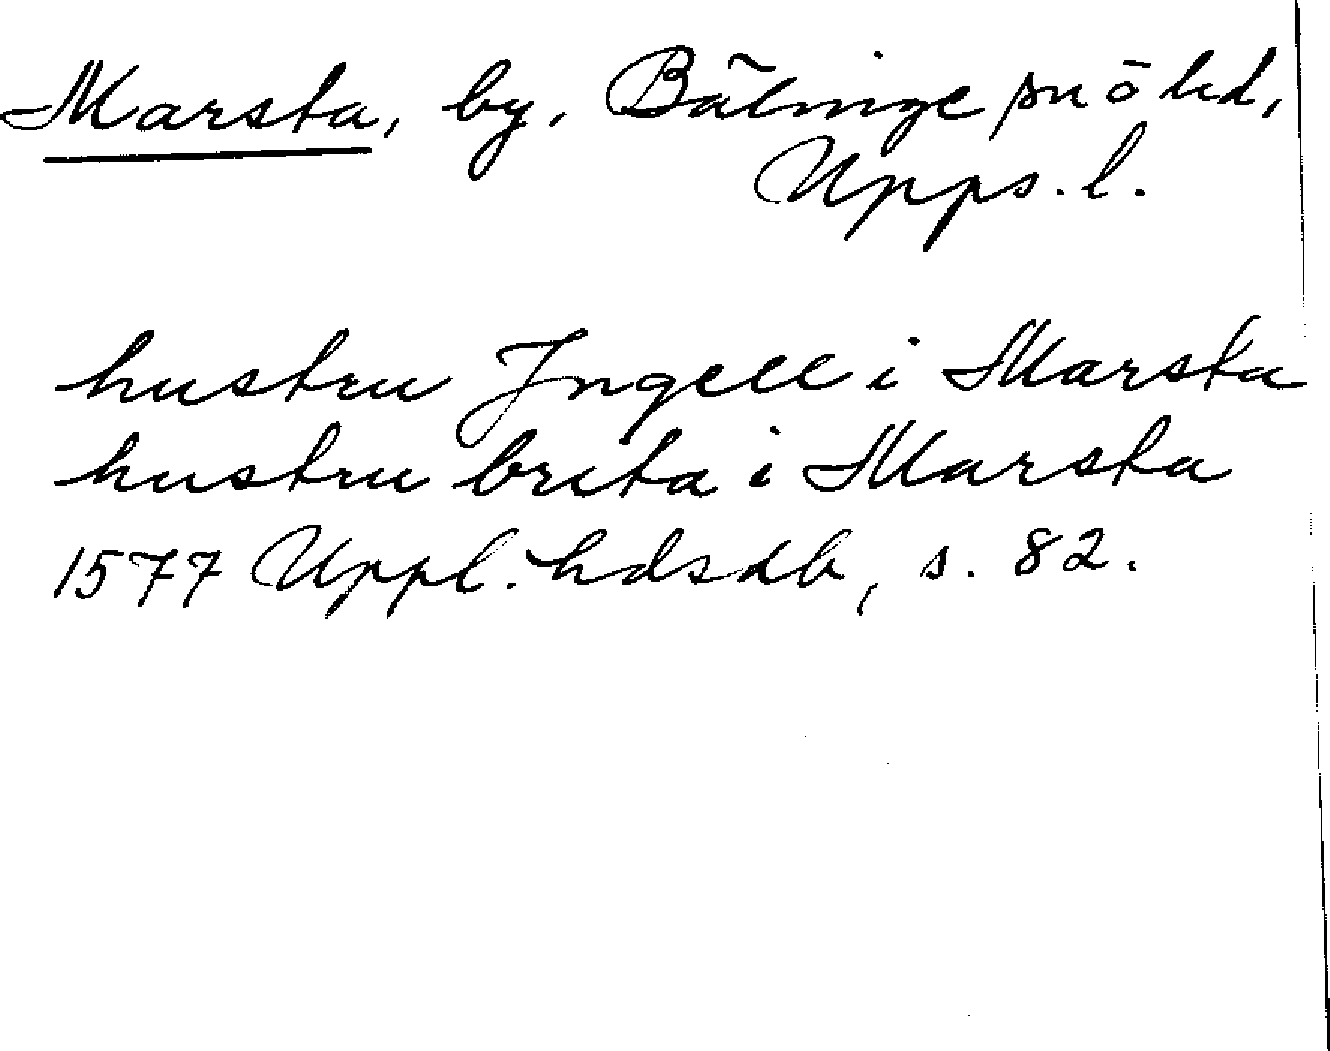 Marsta, by, Bälinge sn o hd,
Upps. l.
hustru Jngell i Marsta
hustru brita i Marsta
1577 Uppl. hdsdb, s. 82.